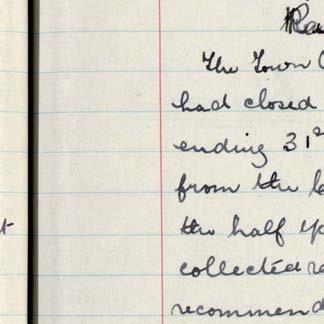 Ra
The Town C
had closed
ending 31s
from the
the half y
collected re
recommend
t